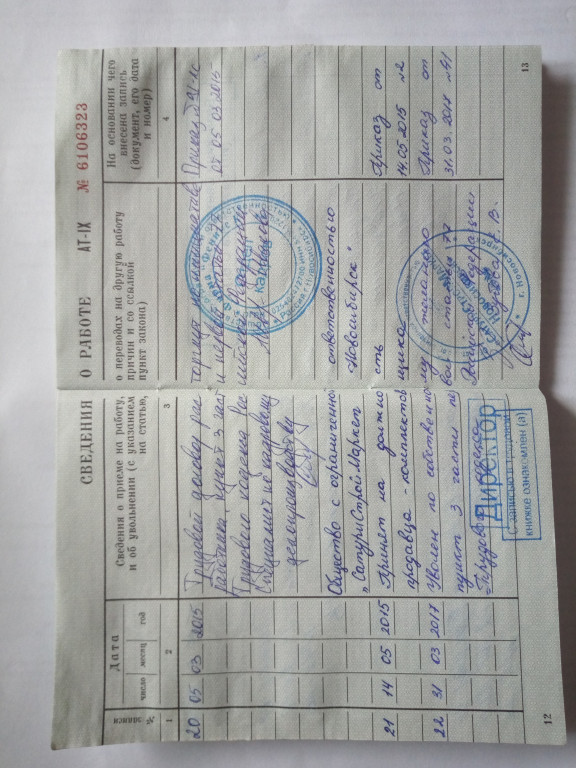 СВЕДЕНИЯ О РАБОТЕ АТ-IX № 6106323
№ записи
Дата
число месяц год
Сведения о приеме на работу, о переводах на другую работу и об увольнении (с указанием причин и со ссылкой на статью, пункт закона)
На основании чего внесена запись (документ, его дата и номер)
1 2 3 4
20 05 03 2015 Трудовой договор расторгнут по инициативе Приказ
работника, пункт 3 части первой статьи 77 от 05 03 2015
Трудового кодекса Российской Федерации
Специалист по кадровому
делопроизводству
Общество с ограниченной ответственностью
„СатуриСтройМаркет Новосибирск"
21 14 05 2015 Принят на должность Приказ от
продавца-комплектовщика 14.05.2015 №2
22 31 03 2017 Уволен по собственному желанию Приказ от
пункт 3 части первой статьи 77 31.03.2017 №41
Трудового кодекса Российской Федерации
Директор
С записью в трудовой
книжке ознакомлен (а)
г. Новосибирск
12
13